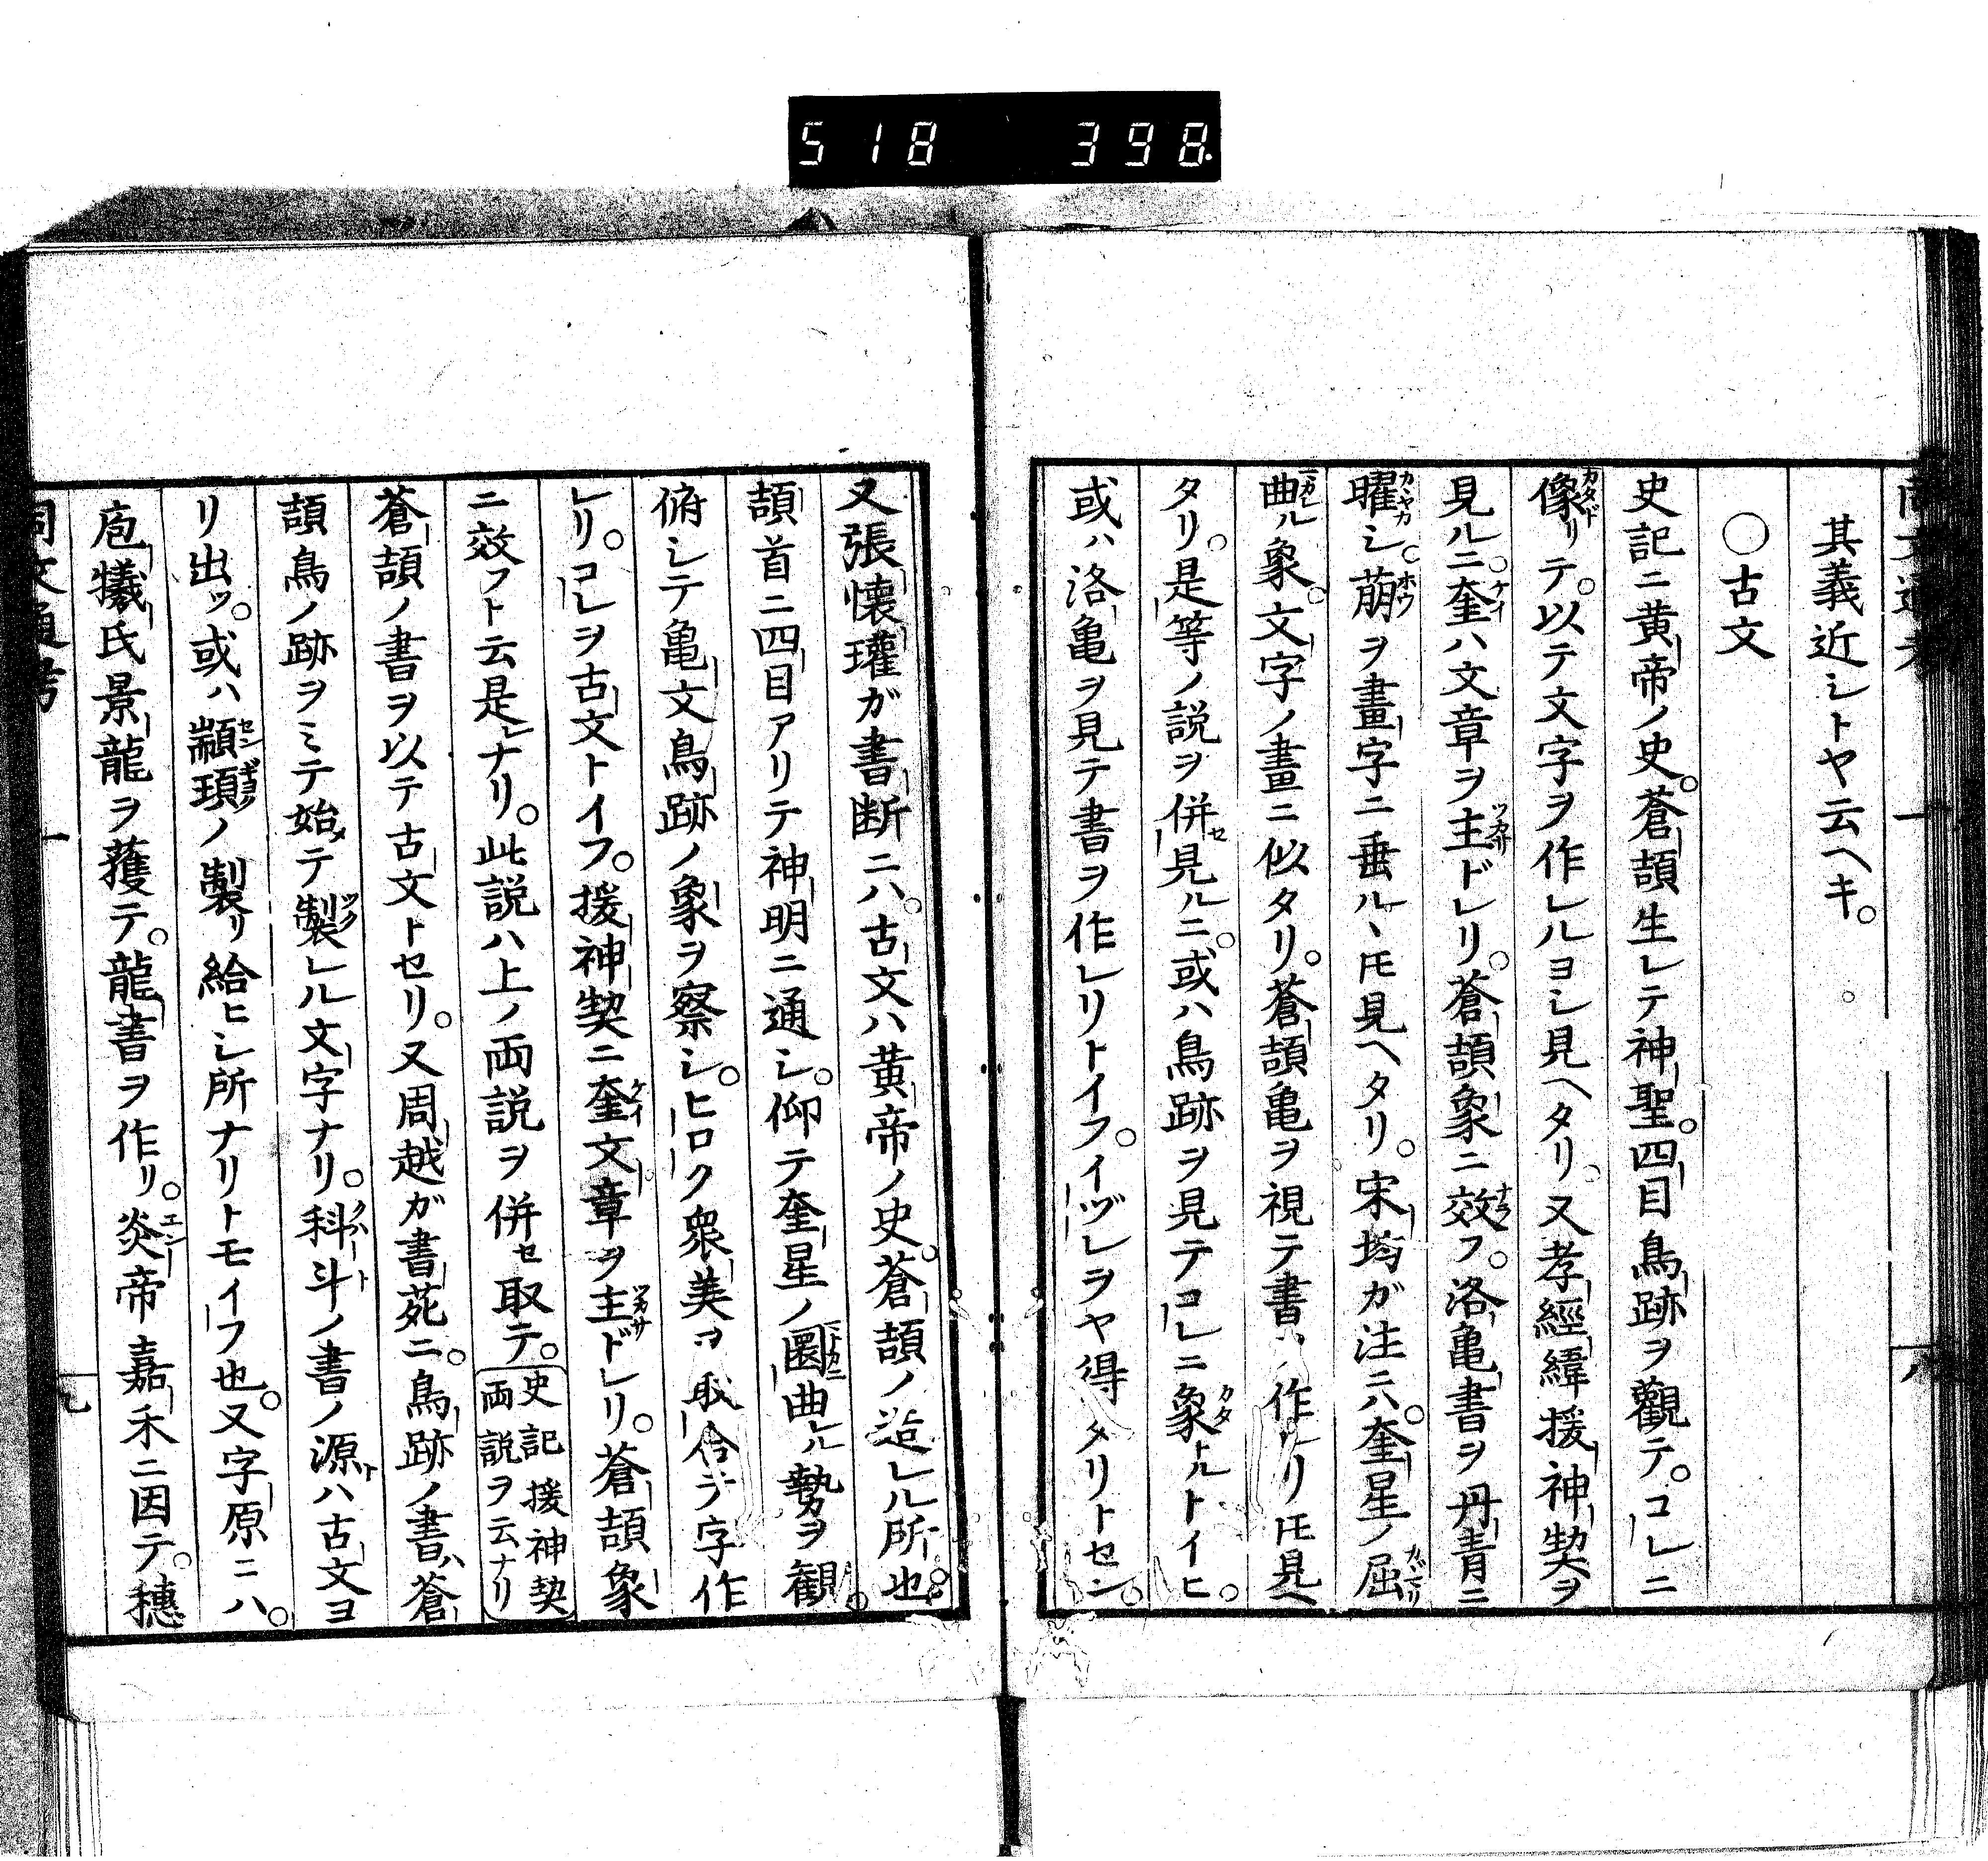 518 398.
其義近シトヤ云ヘキ。
○古文
史記ニ黄帝ノ史。蒼頡生レテ神聖。四目鳥跡ヲ觀テ。コレニ
像リテ。以テ文字ヲ作レルヨシ見ヘタリ。又孝經緯援神契ヲ
見ルニ。奎ハ文章ヲ主ドレリ。蒼頡象ニ效フ。洛亀書ヲ丹青ニ
曜シ。萠ヲ畫字ニ垂ル、ト モ見ヘタリ。宋均ガ注ニハ。奎星ノ屈
曲ル象。文字ノ畫ニ似タリ。蒼頡亀ヲ視テ書ハ作レリ ト モ見ヘ
タリ。是等ノ説ヲ併セ見ルニ。或ハ鳥跡ヲ見テコレニ象トルトイヒ。
或ハ洛亀ヲ見テ書ヲ作レリトイフ。イヅレヲヤ得タリトセン。
又張懐瓘ガ書断ニハ。古文ハ黄帝ノ史。蒼頡ノ造レル所也。
頡首ニ四目アリテ神明ニ通シ。仰テ奎星ノ圜曲レル勢ヲ観。
俯シテ亀文鳥跡ノ象ヲ察シ。ヒロク衆美ヲ取合テ字作
レリ。コレヲ古文トイフ。援神契ニ奎文章ヲ主ドレリ。蒼頡象
ニ效フト云是ナリ。此説ハ上ノ両説ヲ併セ取テ。史記援神契両説ヲ云ナリ
蒼頡ノ書ヲ以テ古文トセリ。又周越ガ書苑ニ。鳥跡ノ書ハ蒼
頡鳥ノ跡ヲミテ始メテ製レル文字ナリ。科斗ノ書ノ源トハ古文ヨ
リ出ッ。或ハ顓頊ノ製リ給ヒシ所ナリトモイフ也。又字原ニハ。
庖犠氏景龍ヲ獲テ。龍書ヲ作リ。炎帝嘉禾ニ因テ。穗
同文通考 一 九